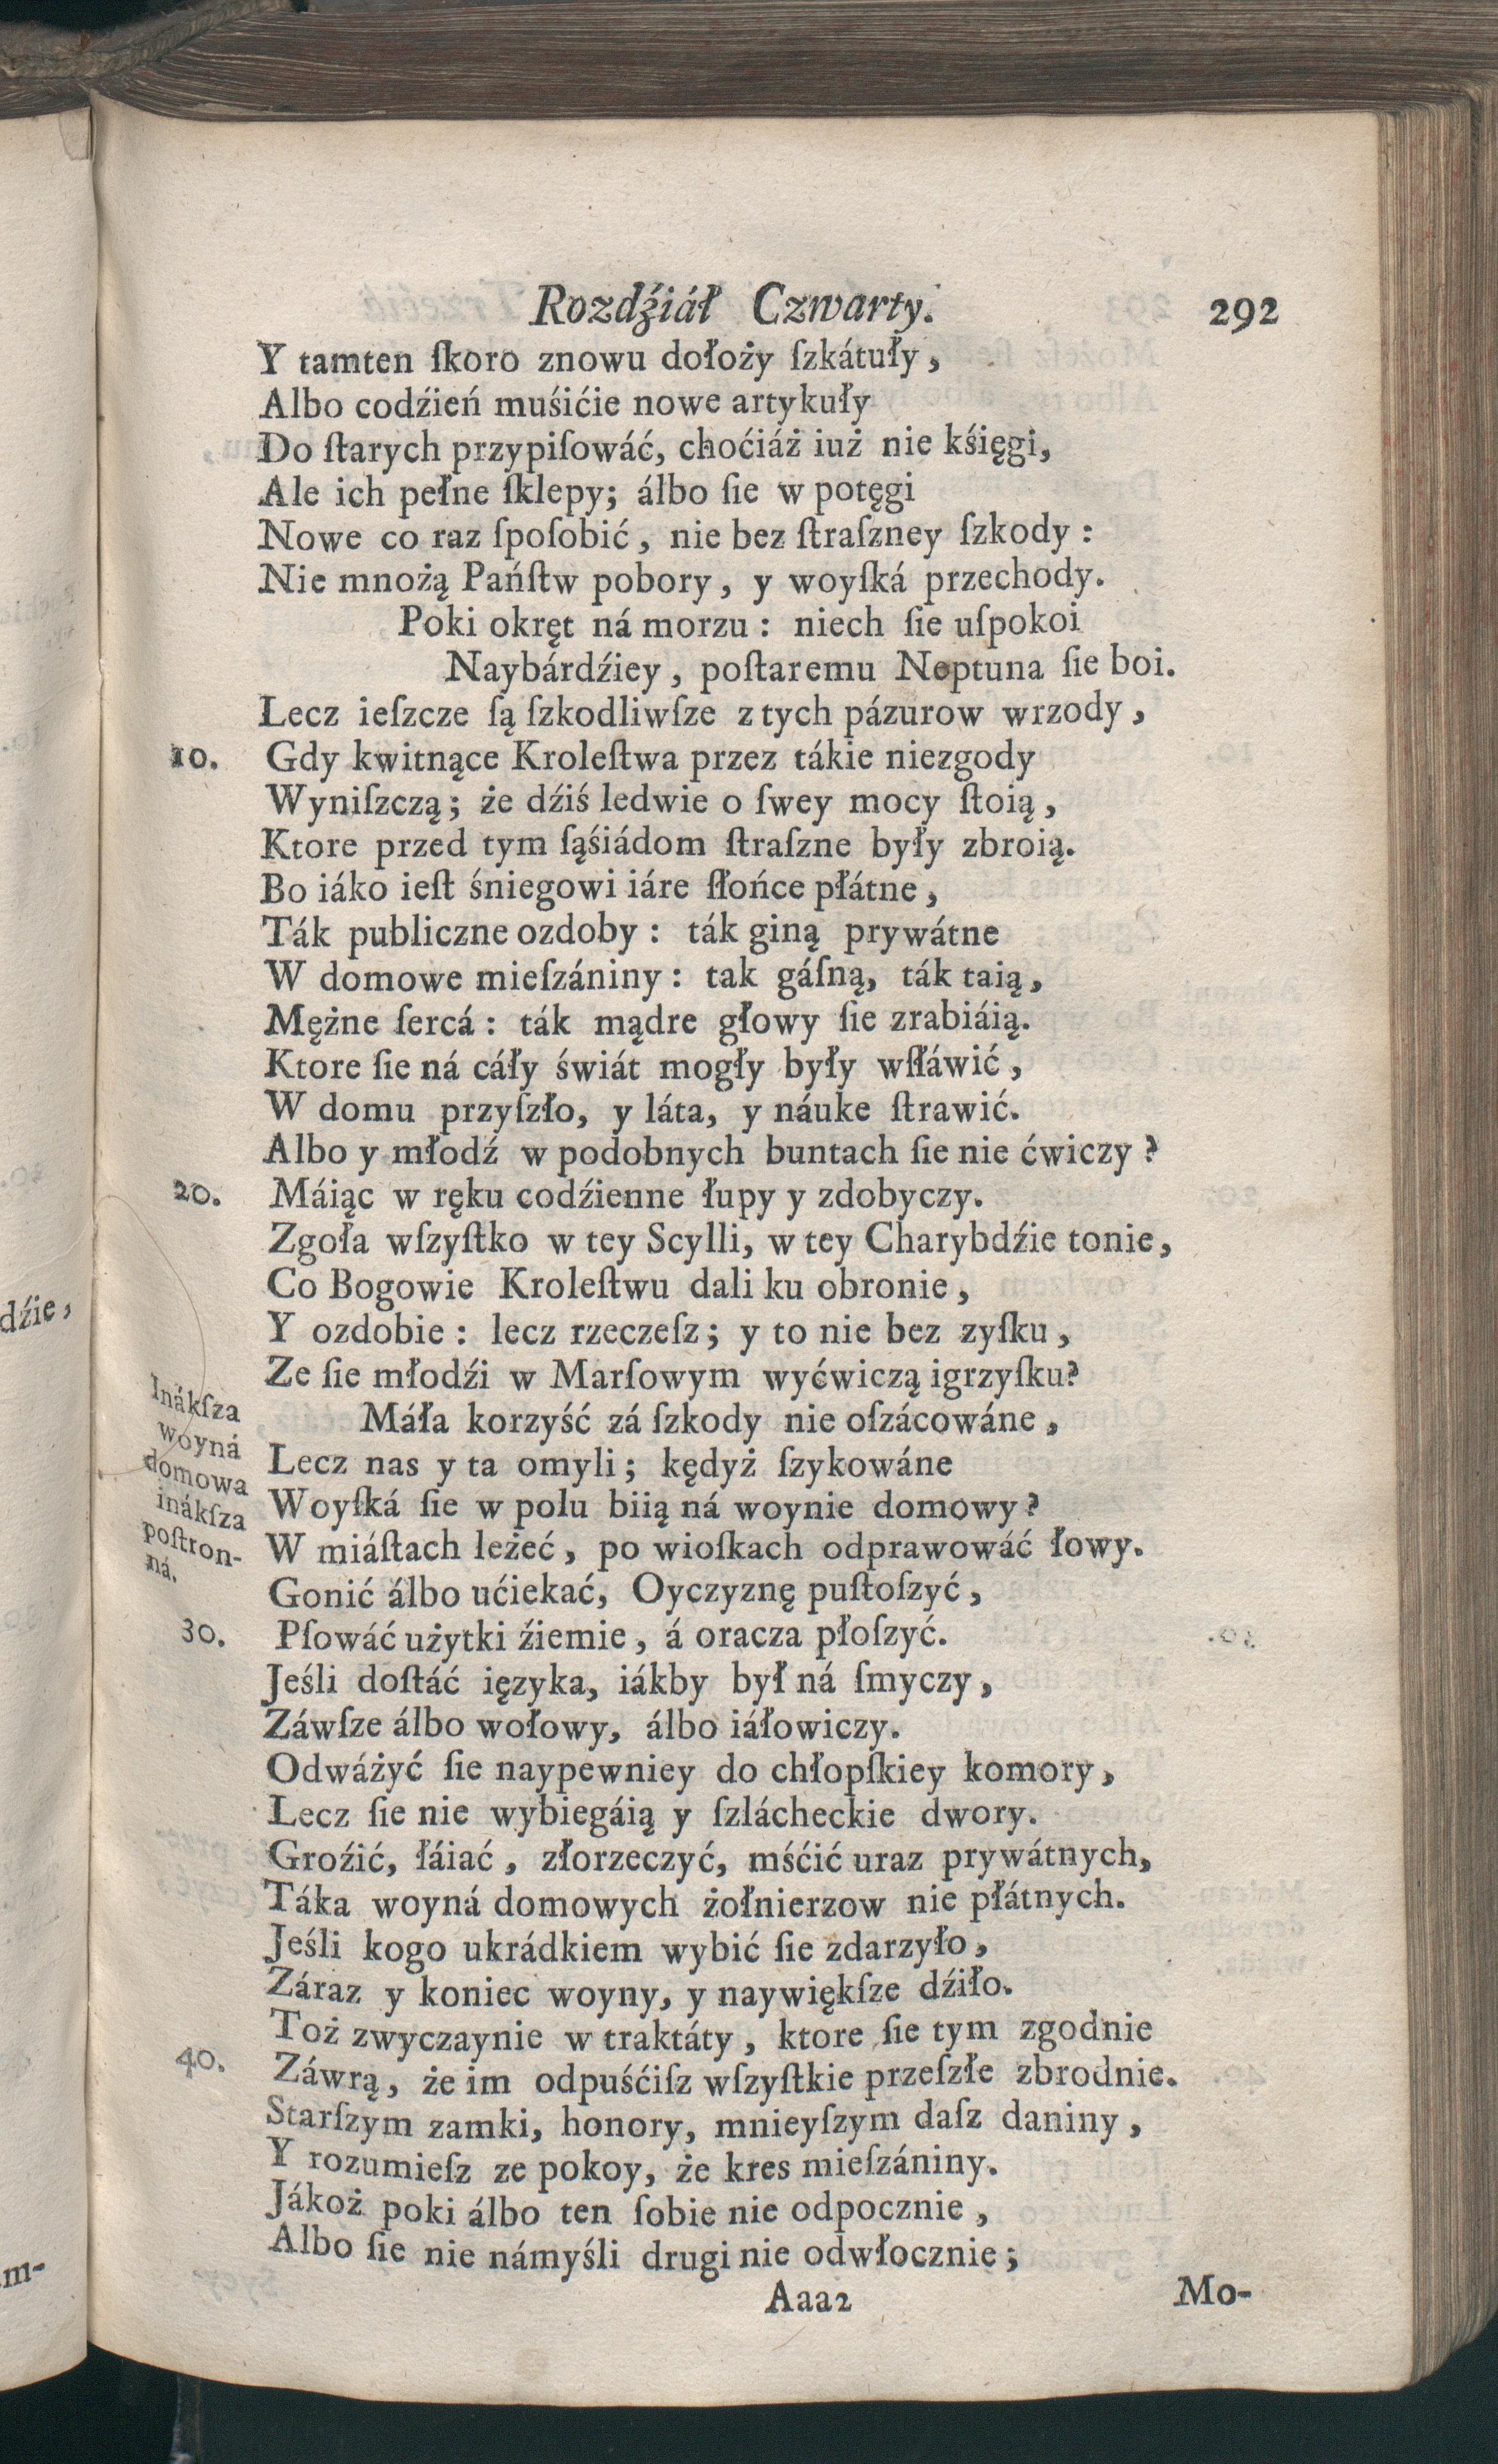 Rozdźiáł Czwarty. 292
Y tamten ſkoro znowu dołoży ſzkátuły,
Albo codźień muśićie nowe artykuły
Do ſtarych przypiſowáć, choćiáż iuż nie kśięgi,
Ale ich pełne ſklepy; álbo ſie w potęgi
Nowe co raz ſpoſobić, nie bez ſtraſzney ſzkody:
Nie mnożą Pańſtw pobory, y woyſká przechody.
Poki okręt ná morzu: niech ſie uſpokoi
Naybárdźiey, poſtaremu Neptuna ſie boi.
Lecz ieſzcze ſą ſzkodliwſze z tych pázurow wrzody,
10. Gdy kwitnące Kroleſtwa przez tákie niezgody
Wyniſzczą; że dźiś ledwie o ſwey mocy ſtoią,
Ktore przed tym ſąśiádom ſtraſzne były zbroią.
Bo iáko ieſt śniegowi iáre ſłońce płátne,
Ták publiczne ozdoby: ták giną prywátne
W domowe mieſzániny: tak gáſną, ták taią,
Mężne ſercá: ták mądre głowy ſie zrabiáią.
Ktore ſie ná cáły świát mogły były wſłáwić,
W domu przyſzło, y láta, y náuke ſtrawić.
Albo y młodź w podobnych buntach ſie nie ćwiczy?
20. Máiąc w ręku codźienne łupy y zdobyczy.
Zgoła wſzyſtko w tey Scylli, w tey Charybdźie tonie,
Co Bogowie Kroleſtwu dali ku obronie,
Y ozdobie: lecz rzeczeſz; y to nie bez zyſku,
Ze ſie młodźi w Marſowym wyćwiczą igrzyſku?
Inákſza
woyná
domowa
inákſza
poſtron-
ná.
Máła korzyść zá ſzkody nie oſzácowáne,
Lecz nas y ta omyli; kędyż ſzykowáne
Woyſká ſie w polu biią ná woynie domowy?
W miáſtach leżeć, po wioſkach odprawowáć łowy.
Gonić álbo ućiekać, Oyczyznę puſtoſzyć,
30. Pſowáć użytki źiemie, á oracza płoſzyć.
Jeśli doſtáć ięzyka, iákby był ná ſmyczy,
Záwſze álbo wołowy, álbo iáłowiczy.
Odwáżyć ſie naypewniey do chłopſkiey komory,
Lecz ſie nie wybiegáią y ſzlácheckie dwory.
Groźić, łáiać, złorzeczyć, mśćić uraz prywátnych,
Táka woyná domowych żołnierzow nie płátnych.
Jeśli kogo ukrádkiem wybić ſie zdarzyło,
Záraz y koniec woyny, y naywiękſze dźiło.
Toż zwyczaynie w traktáty, ktore ſie tym zgodnie
40. Záwrą, że im odpuśćiſz wſzyſtkie przeſzłe zbrodnie.
Starſzym zamki, honory, mnieyſzym daſz daniny,
Y rozumieſz ze pokoy, że kres mieſzániny.
Jákoż poki álbo ten ſobie nie odpocznie,
Albo ſie nie námyśli drugi nie odwłocznie;
Aaa2 Mo-
dźie,
m-